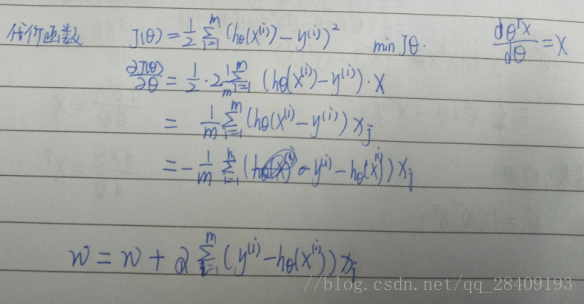 代价函数 J(θ) = 1/2 Σ_{i=1}^{m} (hθ(x^(i)) - y^(i))² min Jθ. dθᵀx/dθ = X
∂J(θ)/∂θ = 1/2 · 2 1/m Σ_{i=1}^{m} (hθ(x^(i)) - y^(i)) · X
= 1/m Σ_{i=1}^{m} (hθ(x^(i)) - y^(i)) x_j
= - 1/m Σ_{i=1} (y^(i) - hθ(x^(i))) x_j
w = w + α Σ_{i=1}^{m} (y^(i) - hθ(x^(i))) x_j
//blog.csdn.net/qq_28409193